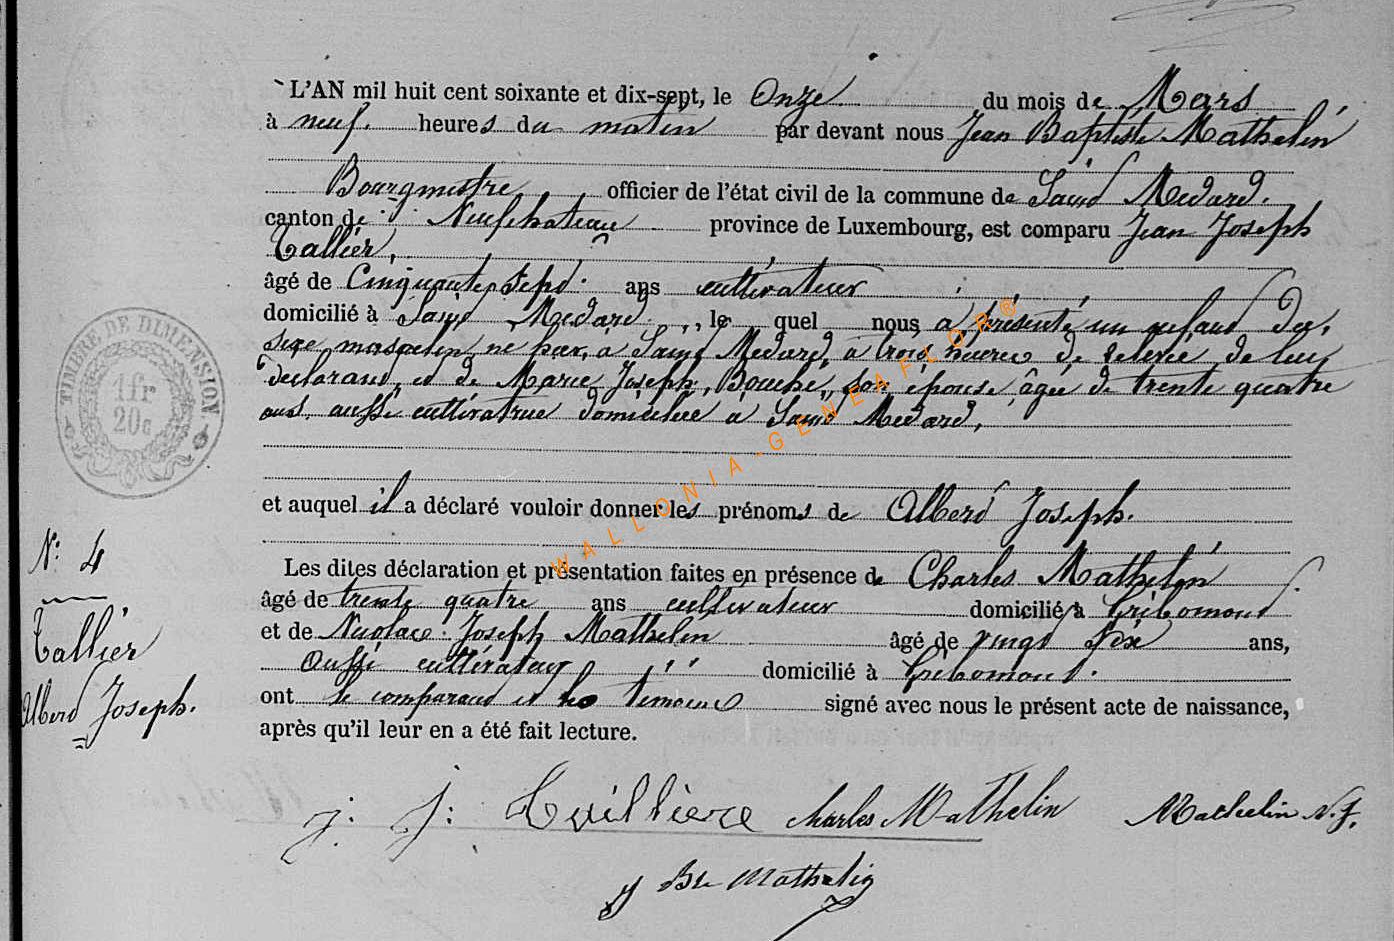 L'AN mil huit cent soixante et dix-sept, le Onze du mois de Mars
à neuf heures du matin par devant nous Jean Baptiste Mathelin
Bourgmestre officier de l'état civil de la commune de Saint Medard.
canton de Neufchateau province de Luxembourg, est comparu Jean Joseph
Tallier,
âgé de Cinquante sept ans cultivateur
domicilié à Saint Medard, le quel nous a présenté un enfant du
sexe masculin, né hier, a Saint Medard, a trois heures de relevée de lui
déclarant, et de Marie Joseph, Bouché, son épouse, âgée de trente quatre
ans aussi cultivatrice domiciliée à Saint Medard,
et auquel il a déclaré vouloir donner les prénoms de Albert Joseph.
Les dites déclaration et présentation faites en présence de Charles Mathelin
âgé de trente quatre ans cultivateur domicilié à Gribomont
et de Nicolas Joseph Mathelin âgé de vingt six ans,
aussi cultivateur domicilié à Gribomont.
ont le comparant et les témoins signé avec nous le présent acte de naissance,
après qu'il leur en a été fait lecture.
N: 4
Tallier
Albert Joseph.
TIMBRE DE DIMENSION
1fr
20c
J: J: Tuillière Charles Mathelin Mathelin N. J.
J Bte Mathelin
WALLONIA-GENEAFLOR®